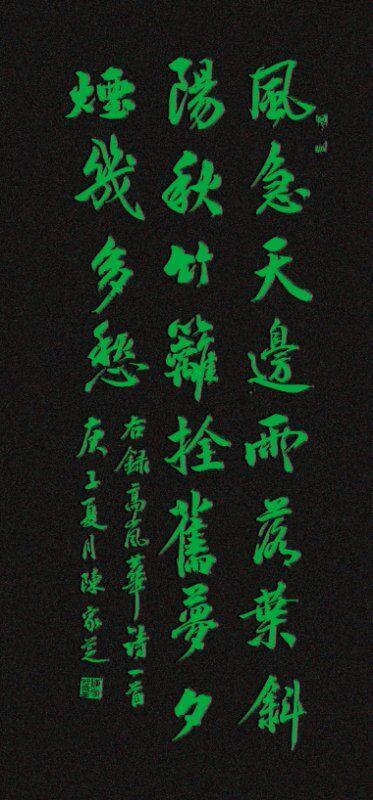 風急天邊雨落葉斜
陽秋竹籬拴舊夢夕
煙幾多愁
右録高嵐華詩一首
庚子夏月陳家芝